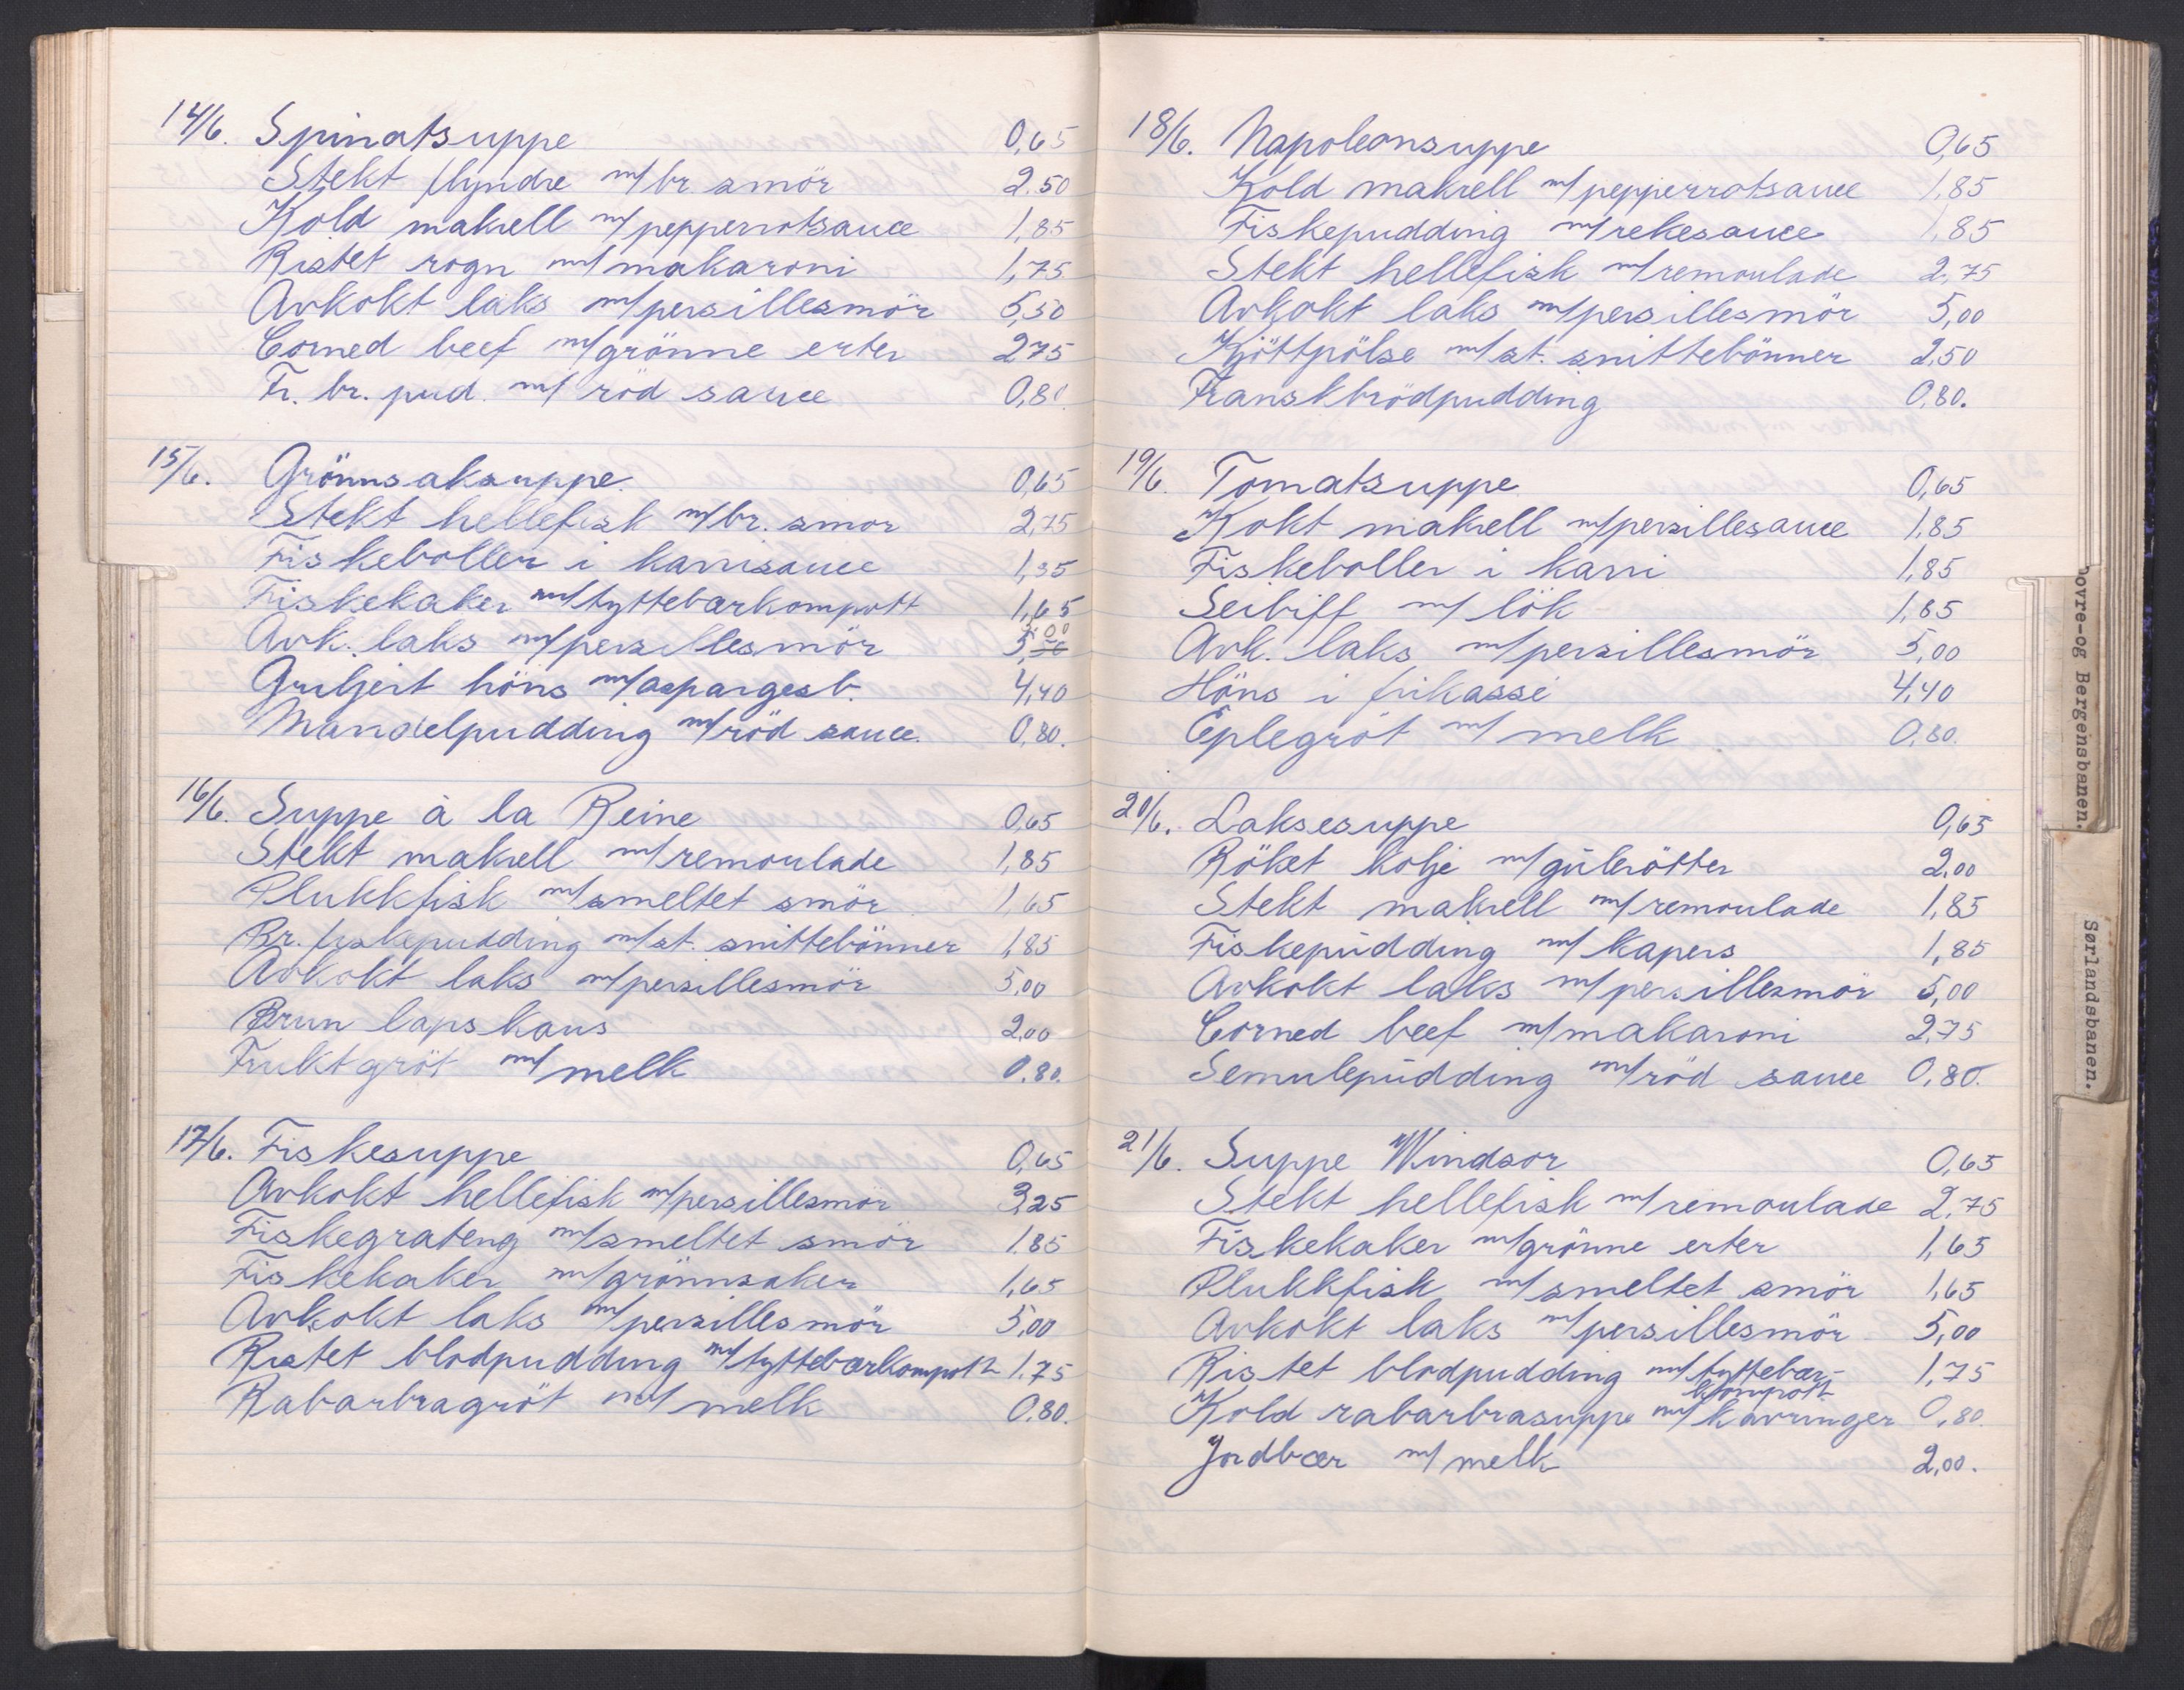 14/6. Spinatsuppe 0,65
Stekt flyndre m/br smör 2.50
Kold makrell m/pepperrotsauce 1,85
Ristet rogn m/makaroni 1,75
Avkokt laks m/persillesmör 5,50
Corned beef m/grönne erter 2,75
Fr. br. pud. m/ röd sauce 0,80.
15/6. Grönnsaksuppe. 0,65
Stekt hellefisk m/br. smor 2,75
Fiskeboller i karrisauce 1,85
Fiskekaker m/tyttebærkompott 1,65
Avk. laks m/persillesmör 5,00
Griljert höns m/aspargesb. 4,40
Mandelpudding m/röd sauce. 0,80.
16/6. Suppe à la Reine 0,65
Stekt makrell m/remoulade 1,85
Plukkfisk m/smeltet smör 1,65
Br. fiskepudding m/st. snittebönner 1,85
Avkokt laks m/persillesmör 5,00
Brun lapskaus 2,00
Fruktgröt m/melk 0.80.
17/6. Fiskesuppe 0,65
Avkokt hellefisk m/persillesmör 3,25
Fiskegrateng m/smeltet smör 1.85
Fiskekaker m/grönnsaker 1,65
Avkokt laks m/persillesmör 5,00
Ristet blodpudding m/tyttebærkompott 1.75
Rabarbragröt m/ melk 0.80.
18/6. Napoleonsuppe 0,65
Kold makrell m/pepperrotsauce 1,85
Fiskepudding m/rekesauce 1,85
Stekt hellefisk m/remoulade 2,75
Avkokt laks m/persillesmör 5,00
Kjöttpölse m/st. snittebönner 2,50
Franskbrödpudding 0,80.
19/6. Tomatsuppe 0,65
Kokt makrell m/persillesauce 1,85
Fiskeboller i karri 1,85
Seibiff m/ lök 1,85
Avk. laks m/persillesmör 5,00
Höns i frikassé 4,40
Eplegröt m/ melk 0,80.
20/6. Laksesuppe 0,65
Röket kolje m/gulerötter 2,00
Stekt makrell m/remoulade 1,85
Fiskepudding m/ kapers 1,85
Avkokt laks m/persillesmör 5,00
Corned beef m/makaroni 2,75
Semulepudding m/röd sauce 0,80.
21/6. Suppe Windsor 0,65
Stekt hellefisk m/remoulade 2,75
Fiskekaker m/grönne erter 1,65
Plukkfisk m/smeltet smör 1,65
Avkokt laks m/persillesmör 5,00
Ristet blodpudding m/tyttebær- 1,75
kompott
Kold rabarbrasuppe m/kavringer 0,80.
Jordbær m/melk 2,00.
ovre-og Bergensbanen.
Sørlandsbanen.